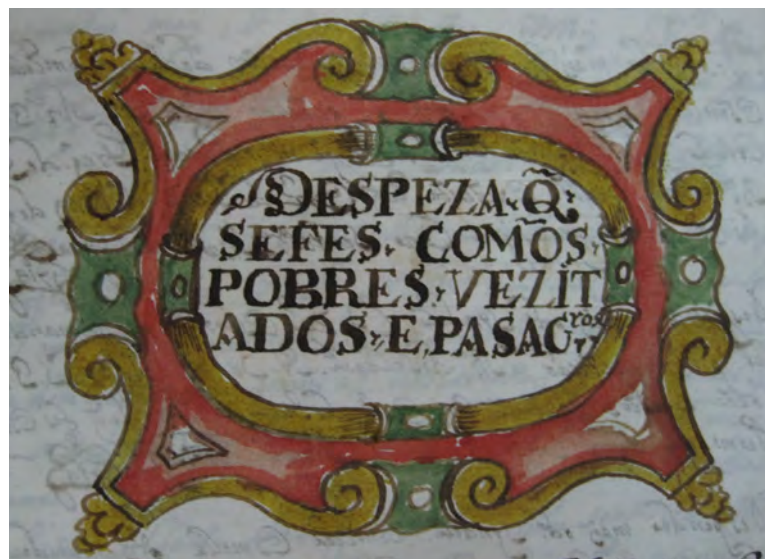 §DESPEZA·Q̃·
SEFES· COMÕS·
POBRES·VEZIT
ADOS·E,PASAG^ros··